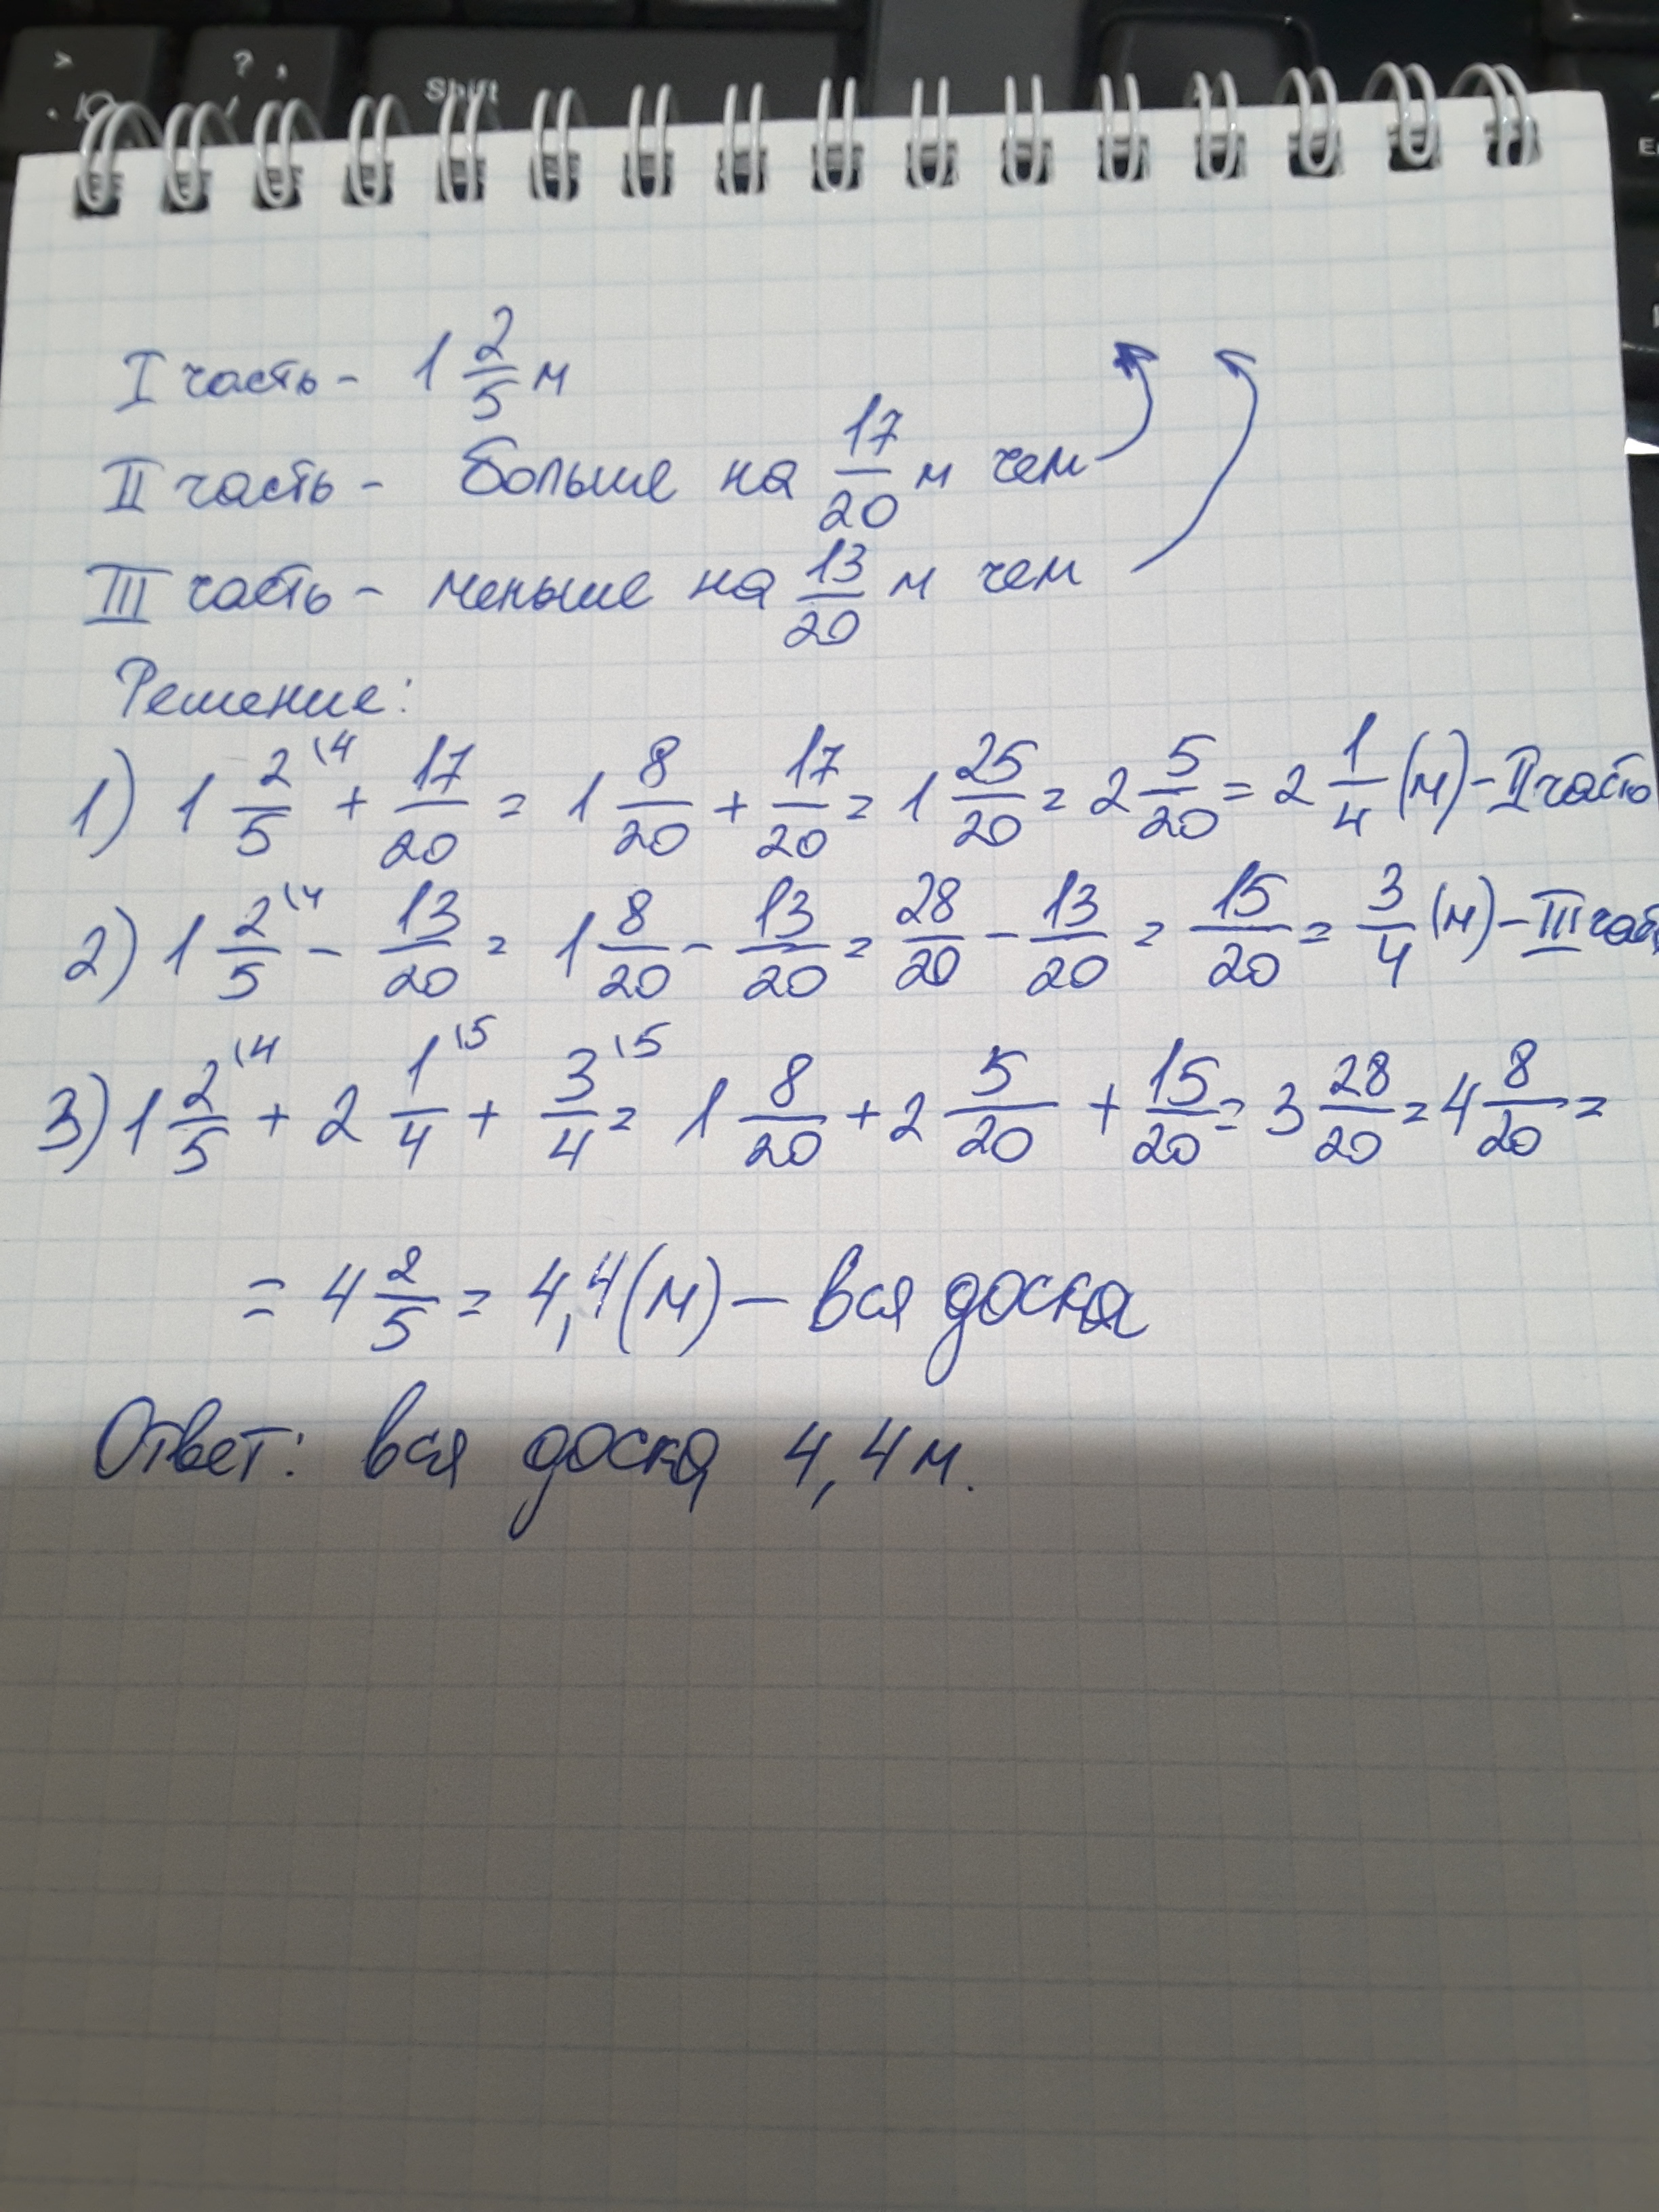 > ? ,
. Ю Shift
I часть - 1 2/5 м
II часть - больше на 17/20 м чем
III часть - меньше на 13/20 м чем
Решение:
1) 1 2/5 \4 + 17/20 = 1 8/20 + 17/20 = 1 25/20 = 2 5/20 = 2 1/4 (м) - II часть
2) 1 2/5 \4 - 13/20 = 1 8/20 - 13/20 = 28/20 - 13/20 = 15/20 = 3/4 (м) - III час
3) 1 2/5 \4 + 2 1/4 \5 + 3/4 \5 = 1 8/20 + 2 5/20 + 15/20 = 3 28/20 = 4 8/20 =
= 4 2/5 = 4,4 (м) - вся доска
Ответ: вся доска 4,4 м.